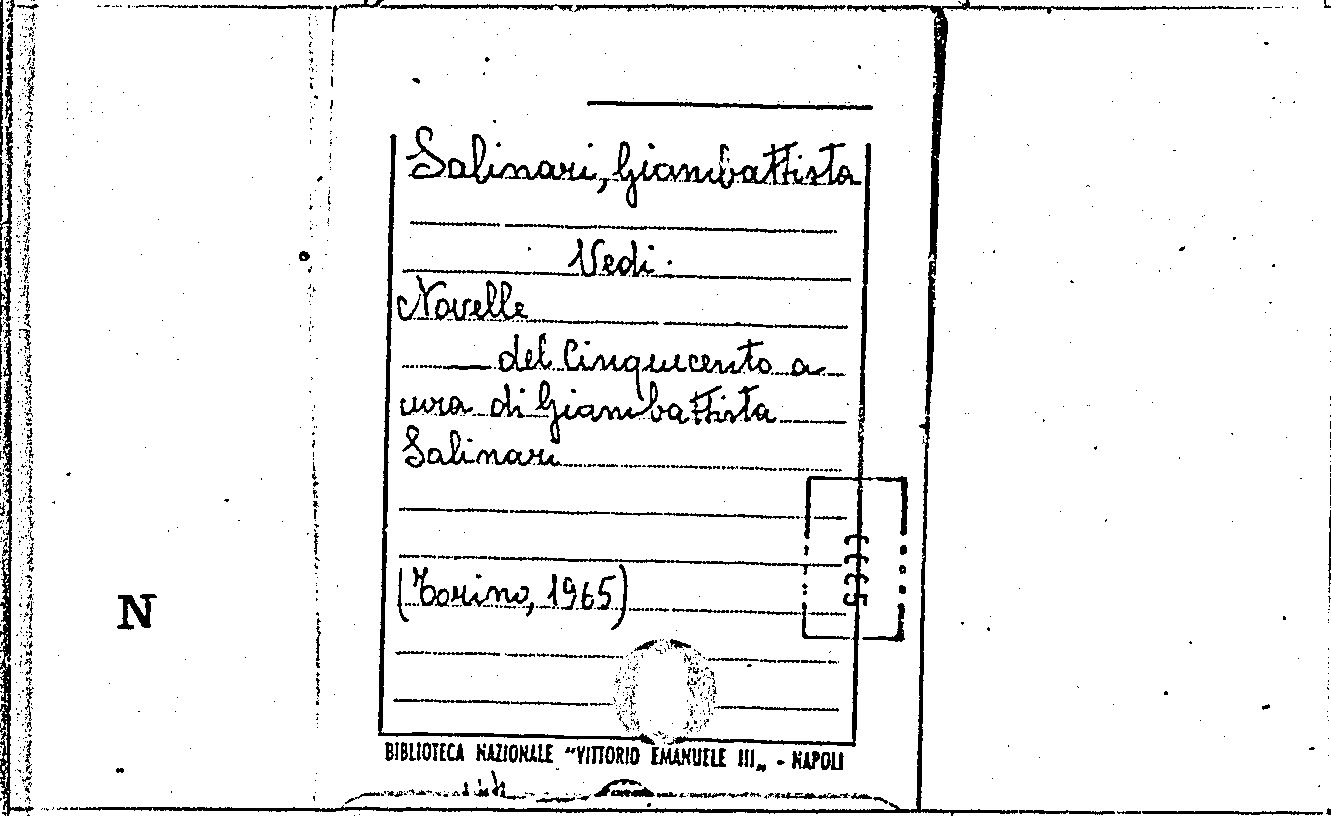 Salinari, Giambattista
Vedi:
Novelle
___ del Cinquecento a
cura di Giambattista
Salinari
(Torino, 1965)
N
BIBLIOTECA NAZIONALE "VITTORIO EMANUELE III„ - NAPOLI